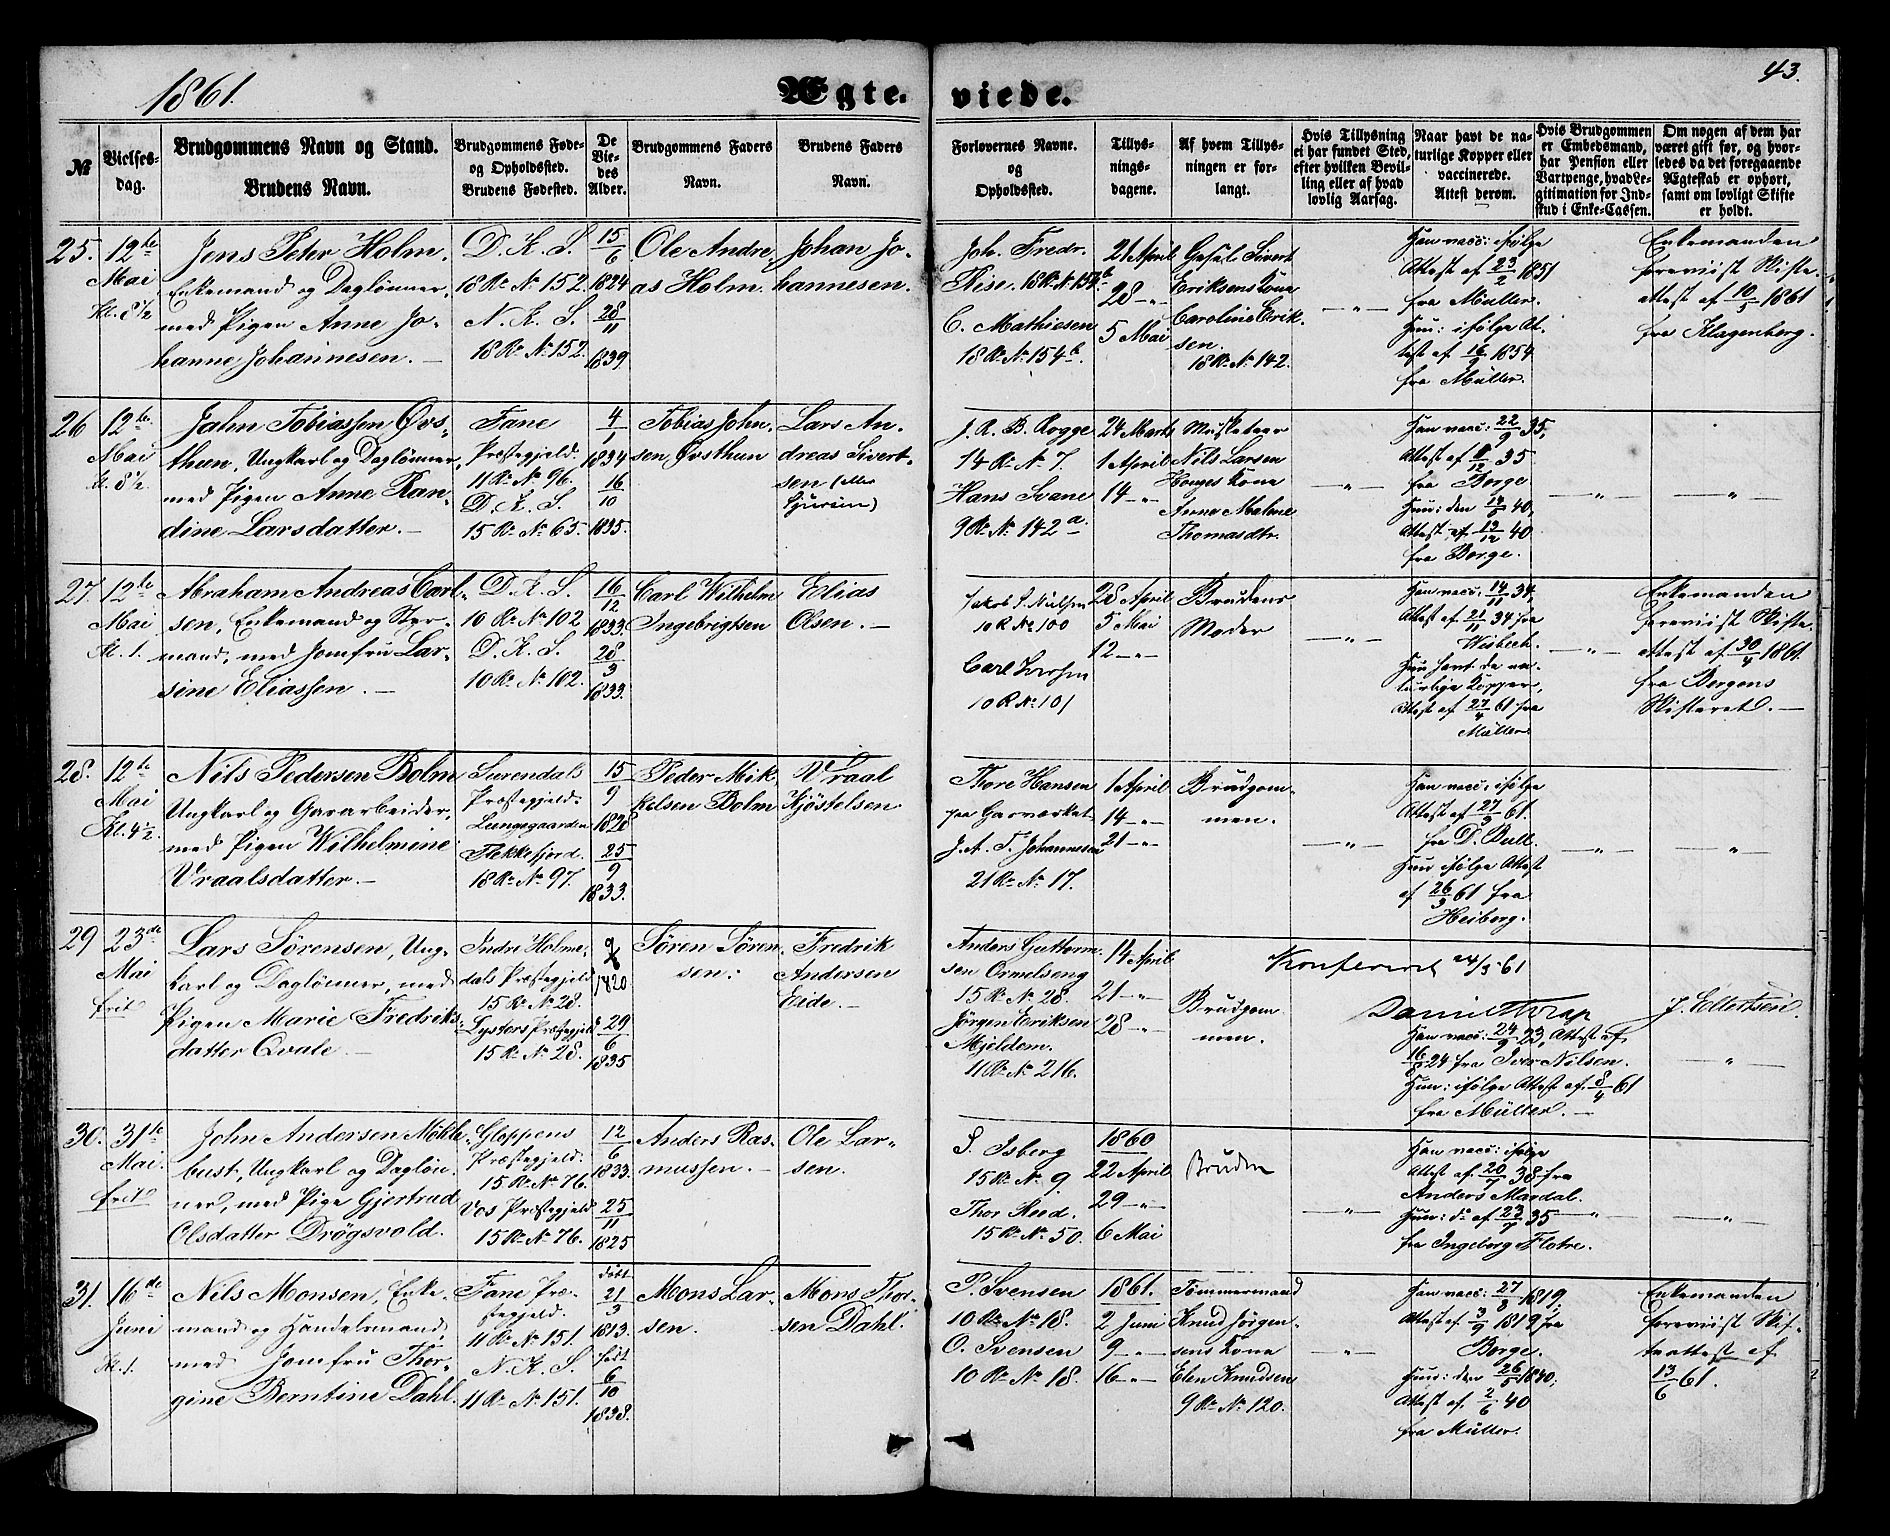 1861.
Ægte-
viede.
43.
№
Vielses-
dag.
Brudgommens Navn og Stand.
Brudens Navn.
Brudgommens Føde-
og Opholdssted.
Brudens Fødested.
De
Vie-
des
Alder.
Brudgommens Faders
Navn.
Brudens Faders
Navn.
Forlovernes Navne.
og
Opholdssted.
Tillys-
nings-
dagene.
Af hvem Tillys-
ningen er for-
langt.
Hvis Tillysning
ei har fundet Sted,
efter hvilken Bevil-
ling eller af hvad
lovlig Aarsag.
Naar havt de na-
turlige Kopper eller
vaccinerede.
Attest derom.
Hvis Brudgommen
er Embedsmand,
har Pension eller
Vartpenge, hvad Le-
gitimation for Ind-
skud i Enke-Cassen.
Om nogen af dem har
været gift før, og hvor-
ledes da det foregaaende
Ægteskab er ophørt,
samt om lovligt Skifte
er holdt.
25.
12te
Mai
Kl. 8½
Jens Peter Holm,
Enkemand og Daglønner,
med Pigen Anne Jo-
hanne Johannesen. —
D. K. S.
18 R. № 152.
N. K. S.
18 R. № 152.
15/6
1824
28/11
1839
Ole Andre-
as Holm.
Johan Jo-
hannesen.
Joh. Fredr.
Riise. 18 R. № 154b
C. Mathiesen
18 R. № 154b.
21 April
28 - „ -
5 Mai
Gesel: Sivert
Eriksens Kone
Caroline Erik-
sen.
18 R. № 142.
— „ —
Han vacc: ifølge
Attest af 23/2 1851
fra Müller.
Hun: ifølge At-
test af 16/9 1854
fra Müller.
Enkemanden
foreviist Skifte-
attest af 10/5 1861
fra Klagenberg.
26
12te
Mai
Kl. 8½.
John Tobiassen Øvs-
thun, Ungkarl og Daglønner,
med Pigen Anne Ran-
dine Larsdatter. —
Fane
Præstegjeld.
11 R. № 96.
D. K. S.
15 R. № 65.
4/1
1834
16/10
1835.
Tobias John-
sen Øvsthun
Lars An-
dreas Sivert-
sen (eller
J. R. B. Rogge
14 R. № 7.
Hans Svane
9 R. № 142 a.
24 Marts
1 April
14 - „ -
Musketeer
Nils Larsen
Konges Kone
Anna Malene
Thomasdtr.
— „ —
Han vacc: 22/9 35,
Attest af 8/12 35
fra Borge
Hun: den 14/5 40,
Attest af 13/12 40
fra Borge.
— „ —
— „ —
27.
12te
Mai
Kl. 1.
Abraham Andreas Carl-
sen, Enkemand og Styr-
mand, med Jomfru Lar-
sine Eliassen. —
D. K. S.
10 R. № 102
D. K. S.
10 R. № 102.
16/12
1833.
28/3
1833.
Carl Wilhelm
Ingebrigtsen
Elias
Olsen. —
Jakob J. Nielsen
10 R № 100
Carl
10 R № 101
28 April
5 Mai
12 - „ -
Brudens
Moder
— „ —
Han vacc. 14/11 34,
Attest af 21/11 34 fra
Wisbech.
Hun havt de na-
turlige Kopper,
Attest af 27/4 61 fra
Müller.
— „ —
Enkemanden
foreviist Skifte-
attest af 30/4 1861
fra Bergens
Skifteret. —
28.
12te
Mai
Kl. 4½.
Nils Pedersen Bolm
Ungkarl og Garvarbeider,
med Pigen Wilhelmine
Vraalsdatter. —
Surendals
Præstegjeld.
Lungegaarden
Flekkefjord.
18 R. № 97.
15/9
1828
25/9
1833.
Peder Mik-
kelsen Bolm
Vraal
Kjøstelsen
Thore Hansen
paa Garværket
J. A. T. Johannesen
21 R. № 17.
1 April
14 - „ -
21 - „ -
Brudgom-
men.
— „ —
Han vacc: ifølge
Attest af 27/3 61.
fra D. Bull.
Hun ifølge Attest
af 26/3 61 fra
Heiberg.
— „ —
„
29
23de
Mai
frit
Lars Sørensen, Ung-
karl og Daglønner, med
Pigen Marie Fredriks-
datter Qvale. —
Indre Holme-
dals Præstegjeld
15 R. № 28.
Lysters Præstegjeld
15 R. № 28.
1820
29/6
1835
Søren Søren-
sen.
Fredrik
Andersen
Eide. —
Anders Guttorm-
sen Ormelseng
15 R. № 28.
Jørgen Eriksen
Mjeldem.
11 R. № 216.
14 April
21 - „ -
28 - „ -
Brudgom-
men.
Konfereret 24/5 61
Daniel Krap
J. Ellertsen.
Han vacc: 24/9 23, Attest af
24 fra Iver Nilsen.
Hun: ifølge Attest af 8/4 61
fra Müller. —
— „ —
30.
31te
Mai.
frit
John Andersen Mykle-
bust, Ungkarl og Dagløn-
ner, med Pige Gjertrud
Olsdatter Drøgsvold.
Gloppens
Præstegjeld.
15 R. № 76.
Vos Præstegjeld
15 R. № 76.
12/6
1833.
25/11
1825
Anders Ras-
mussen. —
Ole Lar-
sen.
S. Isberg
15 R. № 9.
Thor
15 R. № 50.
1860
22 April
29 - „ -
6 Mai
Bruden
— „ —
Han vacc: ifølge
Attest af 20/7 38 fra
Anders Mardal.
Hun: do af 23/7 35
fra Ingeborg Flotre.
„
— „ —
31.
16de
Juni
Kl. 1.
Nils Monsen, Enke-
mand og Handelsmand,
med Jomfru Thor-
gine Berntine Dahl.
Fane Præ-
stegjeld.
11 R. № 151.
N. K. S.
11 R. № 151.
døbt
21/3
1813.
født
6/10
1838.
Mons Lar-
sen.
Mons Thor-
sen Dahl.
P. Svensen
10 R. № 18.
O. Svensen
10 R. № 18.
1861.
2 Juni
9 - „ -
16 - „ -
Tømmermand
Knud Jørgen-
sens Kone
Elen Knudsen
9 R. № 120.
— „ —
Han vacc: 27/8 1819,
Attest af 3/9 1819 fra
Borge.
Hun: den 26/5 1840,
Attest af 2/6 40
fra Müller.
Enkemanden
foreviist Skif-
teattest af
13/6 61.